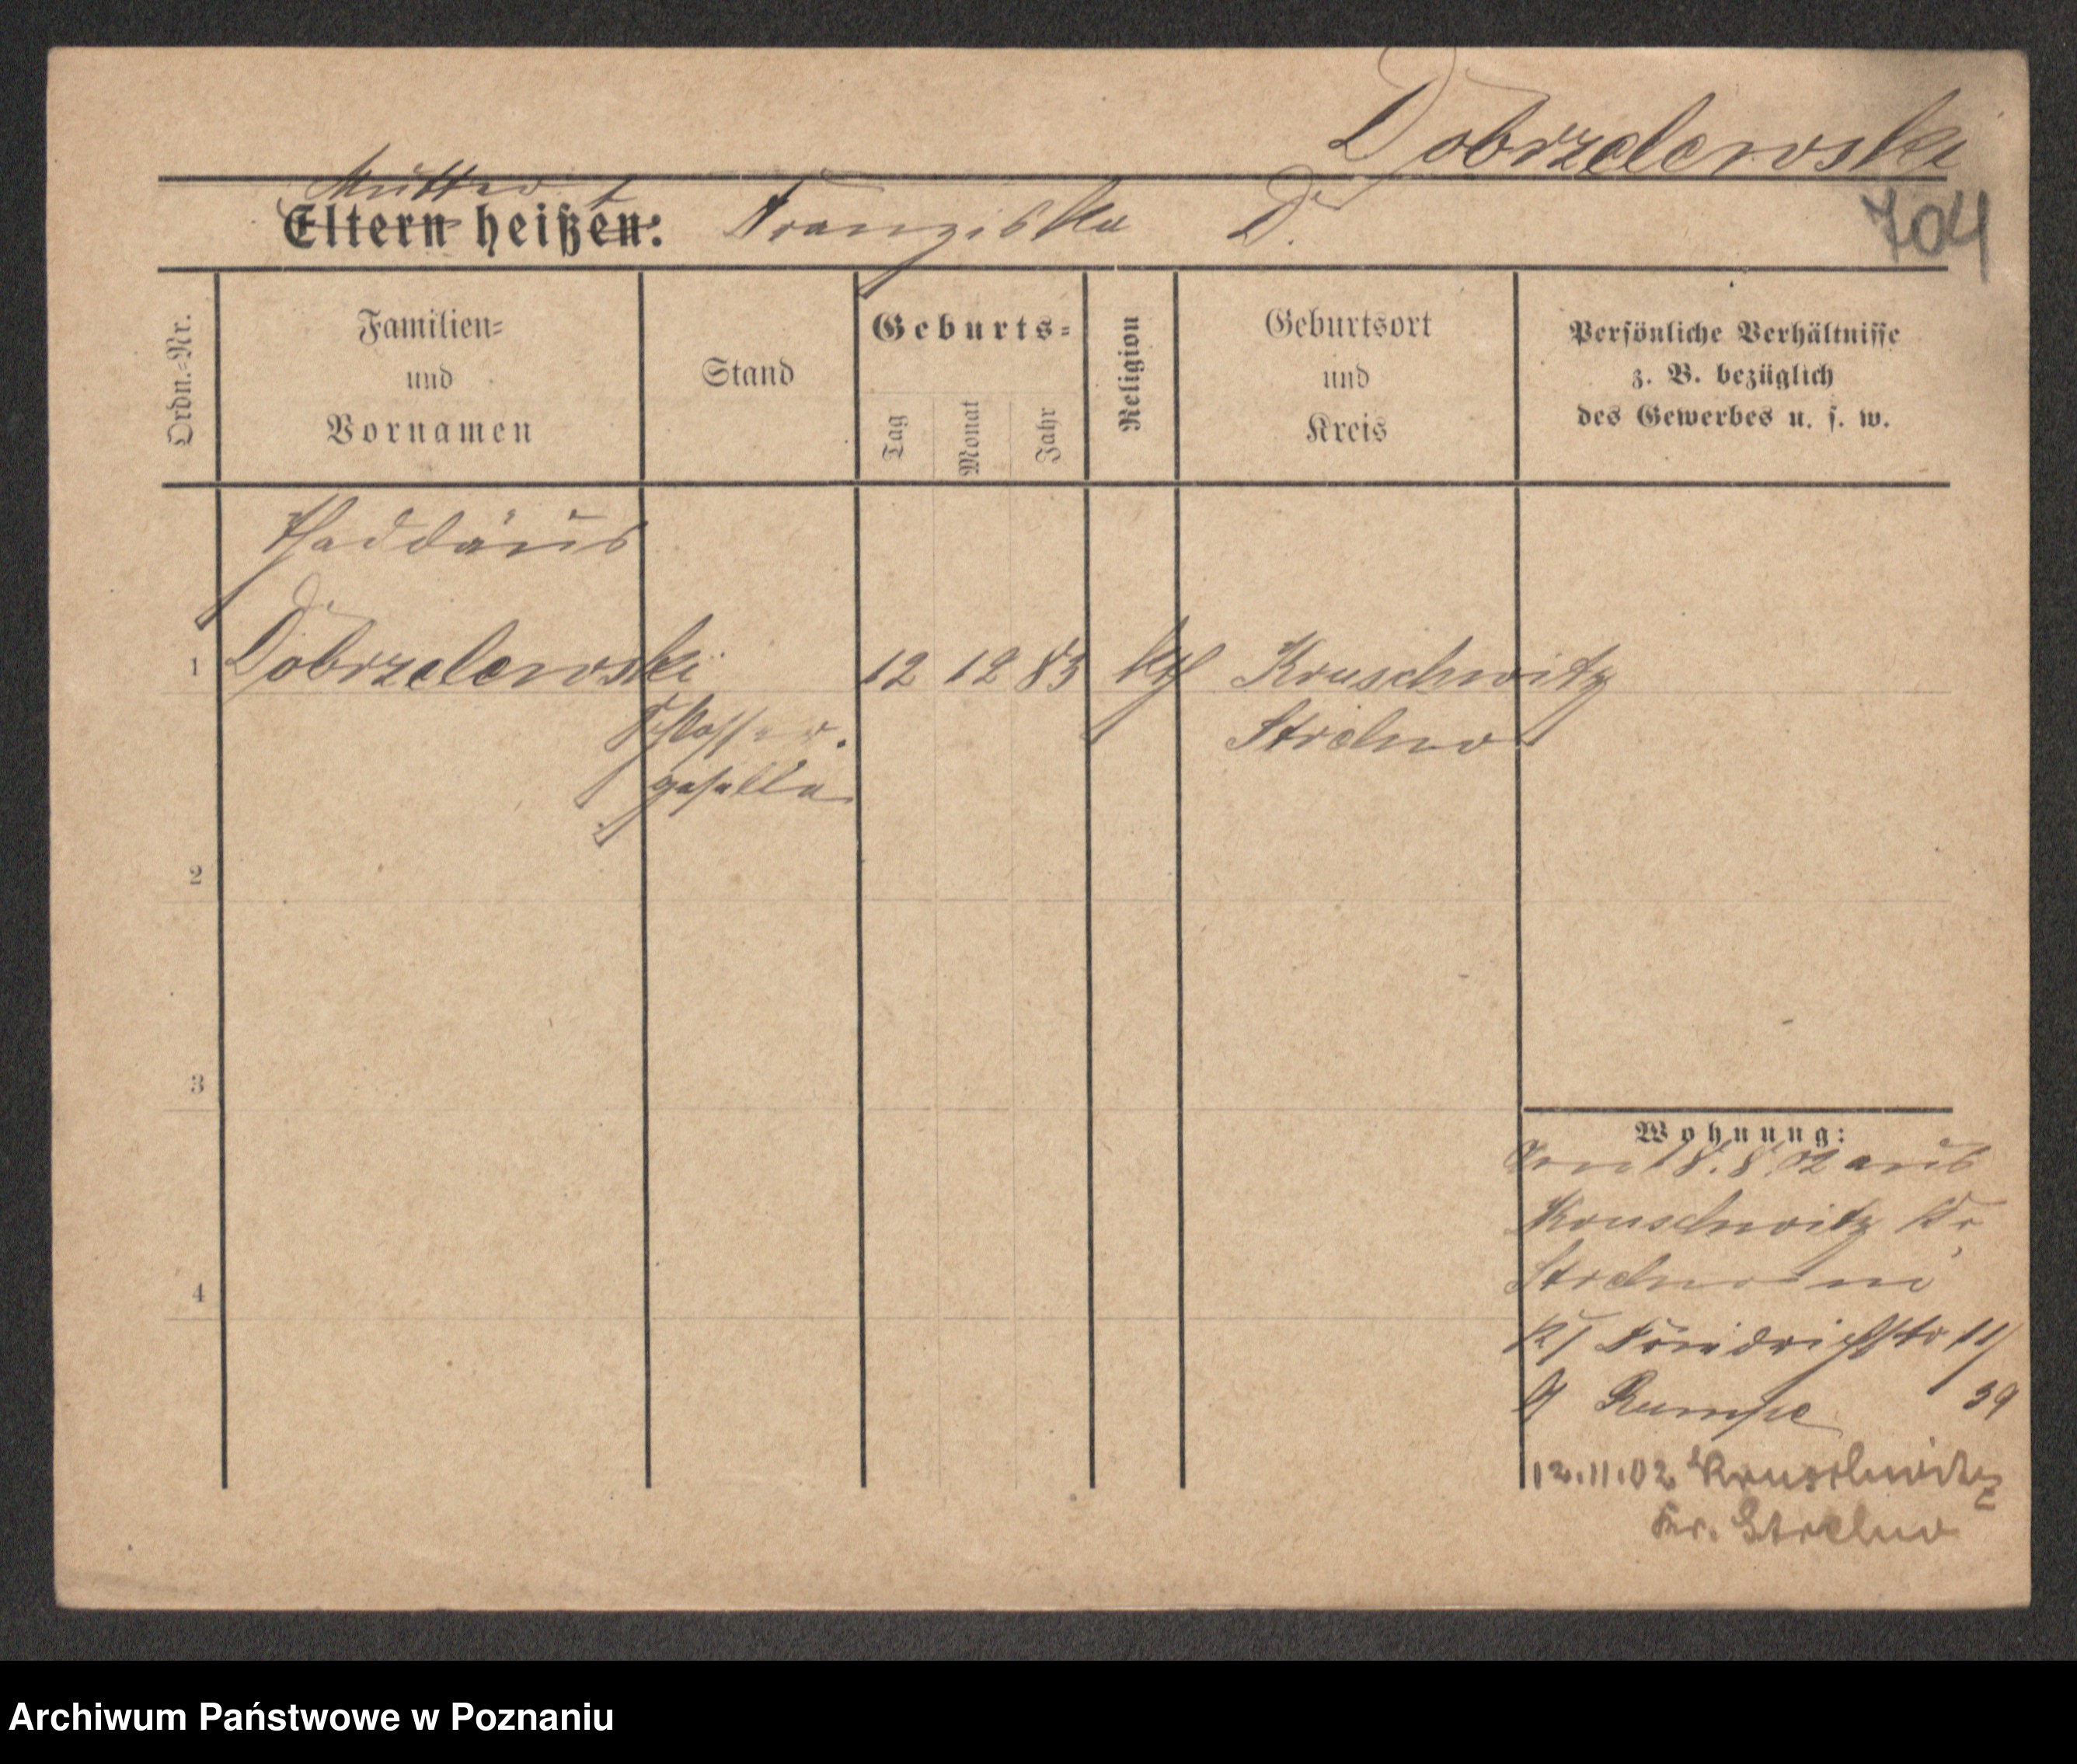 Dobrzelewski
Mutter
Eltern heißen: Franziska D.
704
Ordn.=Nr.
Familien=
und
Vornamen
Stand
Geburts=
Tag
Monat
Jahr
Religion
Geburtsort
und
Kreis
Persönliche Verhältnisse
z. B. bezüglich
des Gewerbes u. s. w.
Thaddäus
1 Dobrzelewski 12 12 83 kth Kruschwitz
Schlosser Strelno
geselle
2
3
4
Wohnung:
Von 18.8.02 aus
Kruschwitz Kr
Strelno in
Friedrichstr 11/
Rumpe 39
12.11.02 Kruschwitz
Kr. Strelno
Archiwum Państwowe w Poznaniu